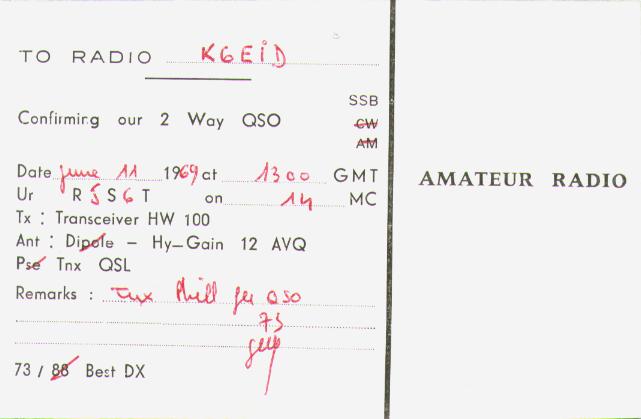 TO RADIO K6EID
Confirming our 2 Way QSO
SSB
CW
AM
Date june 11 1969 at 1300 GMT
Ur R 5 S 6 T on 14 MC
Tx : Transceiver HW 100
Ant : Dipole – Hy–Gain 12 AVQ
Pse Tnx QSL
Remarks : Tnx Phill fer QSO
73
73 / 88 Best DX
AMATEUR RADIO